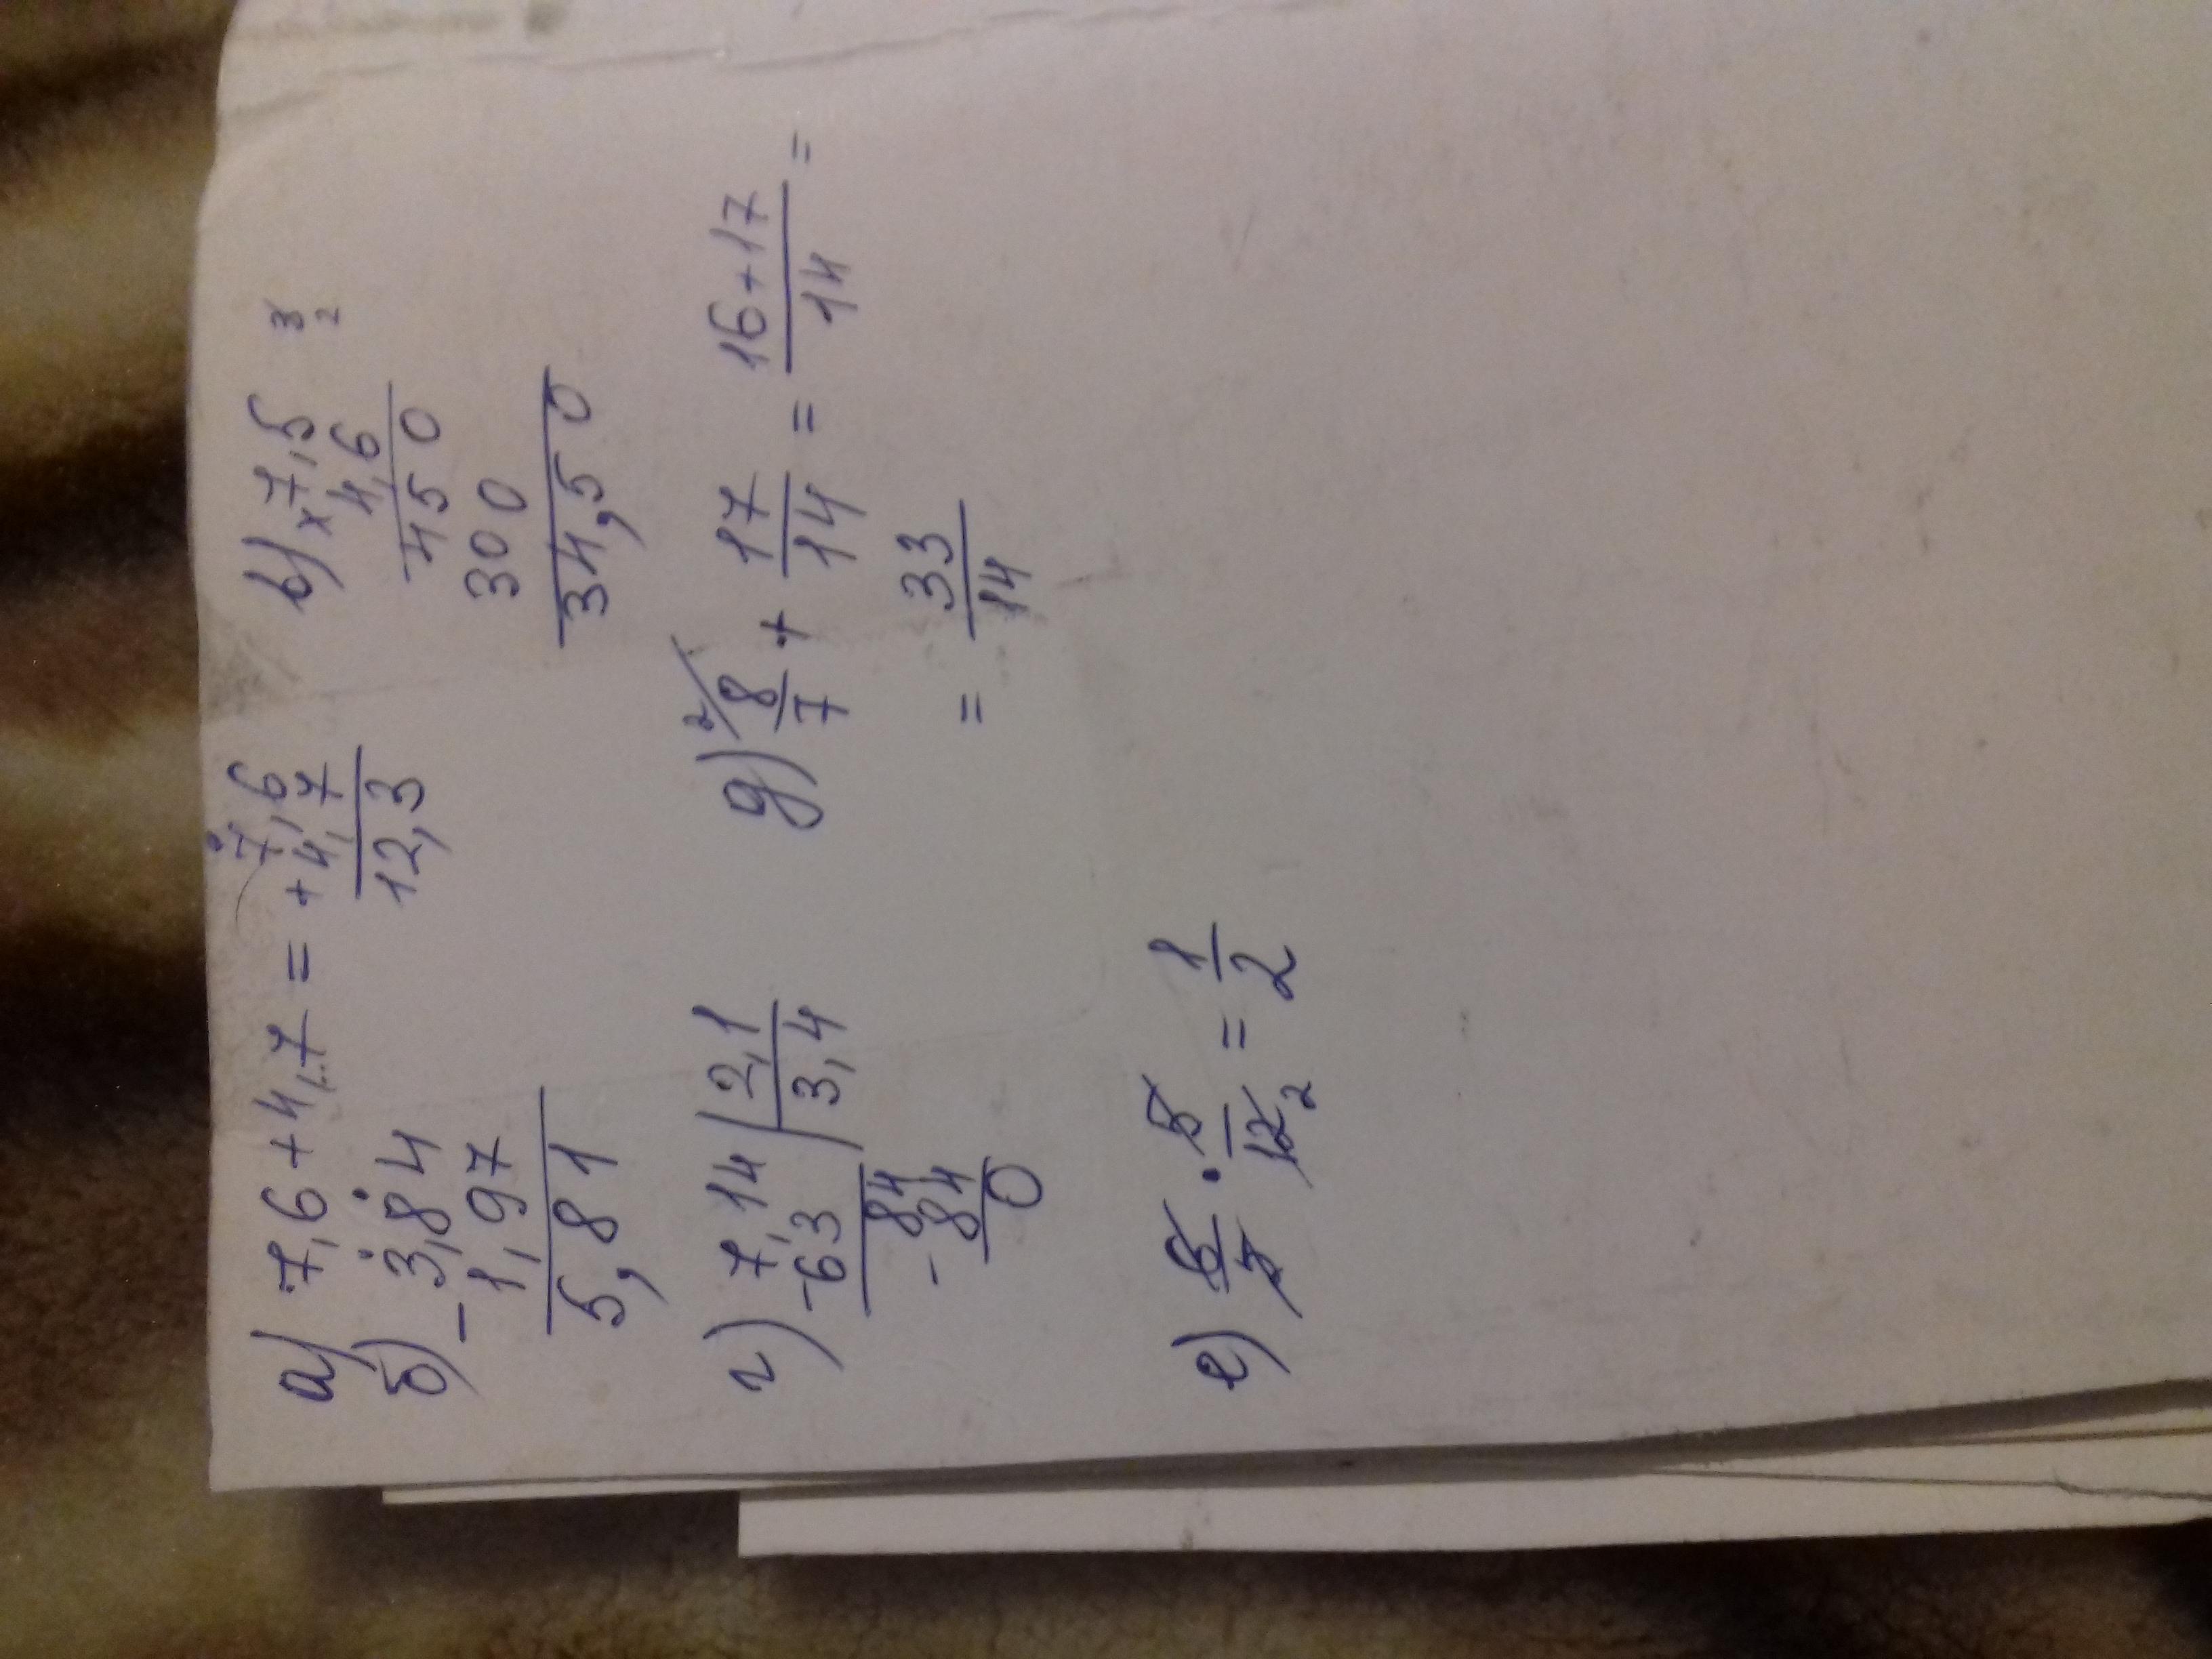 а) 7,6 + 4,7 = + 7,6
4,7
12,3
б) - 3,84
1,97
5,81
в) x 7,5 3
4,6 2
450
300
34,50
г) 7,14 | 2,1
- 63 3,4
84
- 84
0
д) 2/ 8/7 + 17/14 = 16+17/14 =
= 33/14
е) 6/7 · 8/12 2 = 1/2